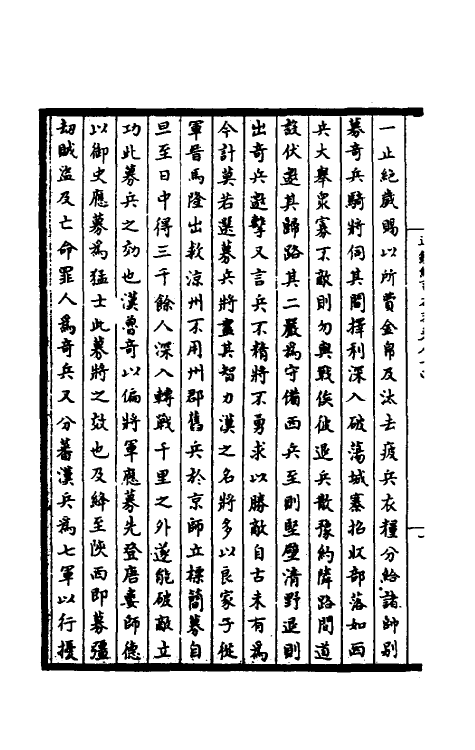 一止絶歲賜以所費金帛及汰去疲兵衣糧分給諸師别
募奇兵騎將伺其間擇利深入破蕩城寨招收部落如西
兵大舉衆寡不敵則勿與戰俟彼退兵散豫約隣路間道
設伏邀其歸路其二嚴爲守備西兵至則堅壁清野退則
出奇兵邀擊又言兵不精將不勇求以勝敵自古未有爲
今計莫若選募兵將盡其智力漢之名將多以良家子從
軍晉馬隆出救涼州不用州郡舊兵於京師立標簡募自
旦至日中得三千餘人深入轉戰千里之外遂能破敵立
功此募兵之効也漢曾奇以偏將軍應募先登唐婁師德
以御史應募爲猛士此募將之效也及絳至陜西即募彊
刼賊盜及亡命罪人爲奇兵又分蕃漢兵爲七軍以行擾